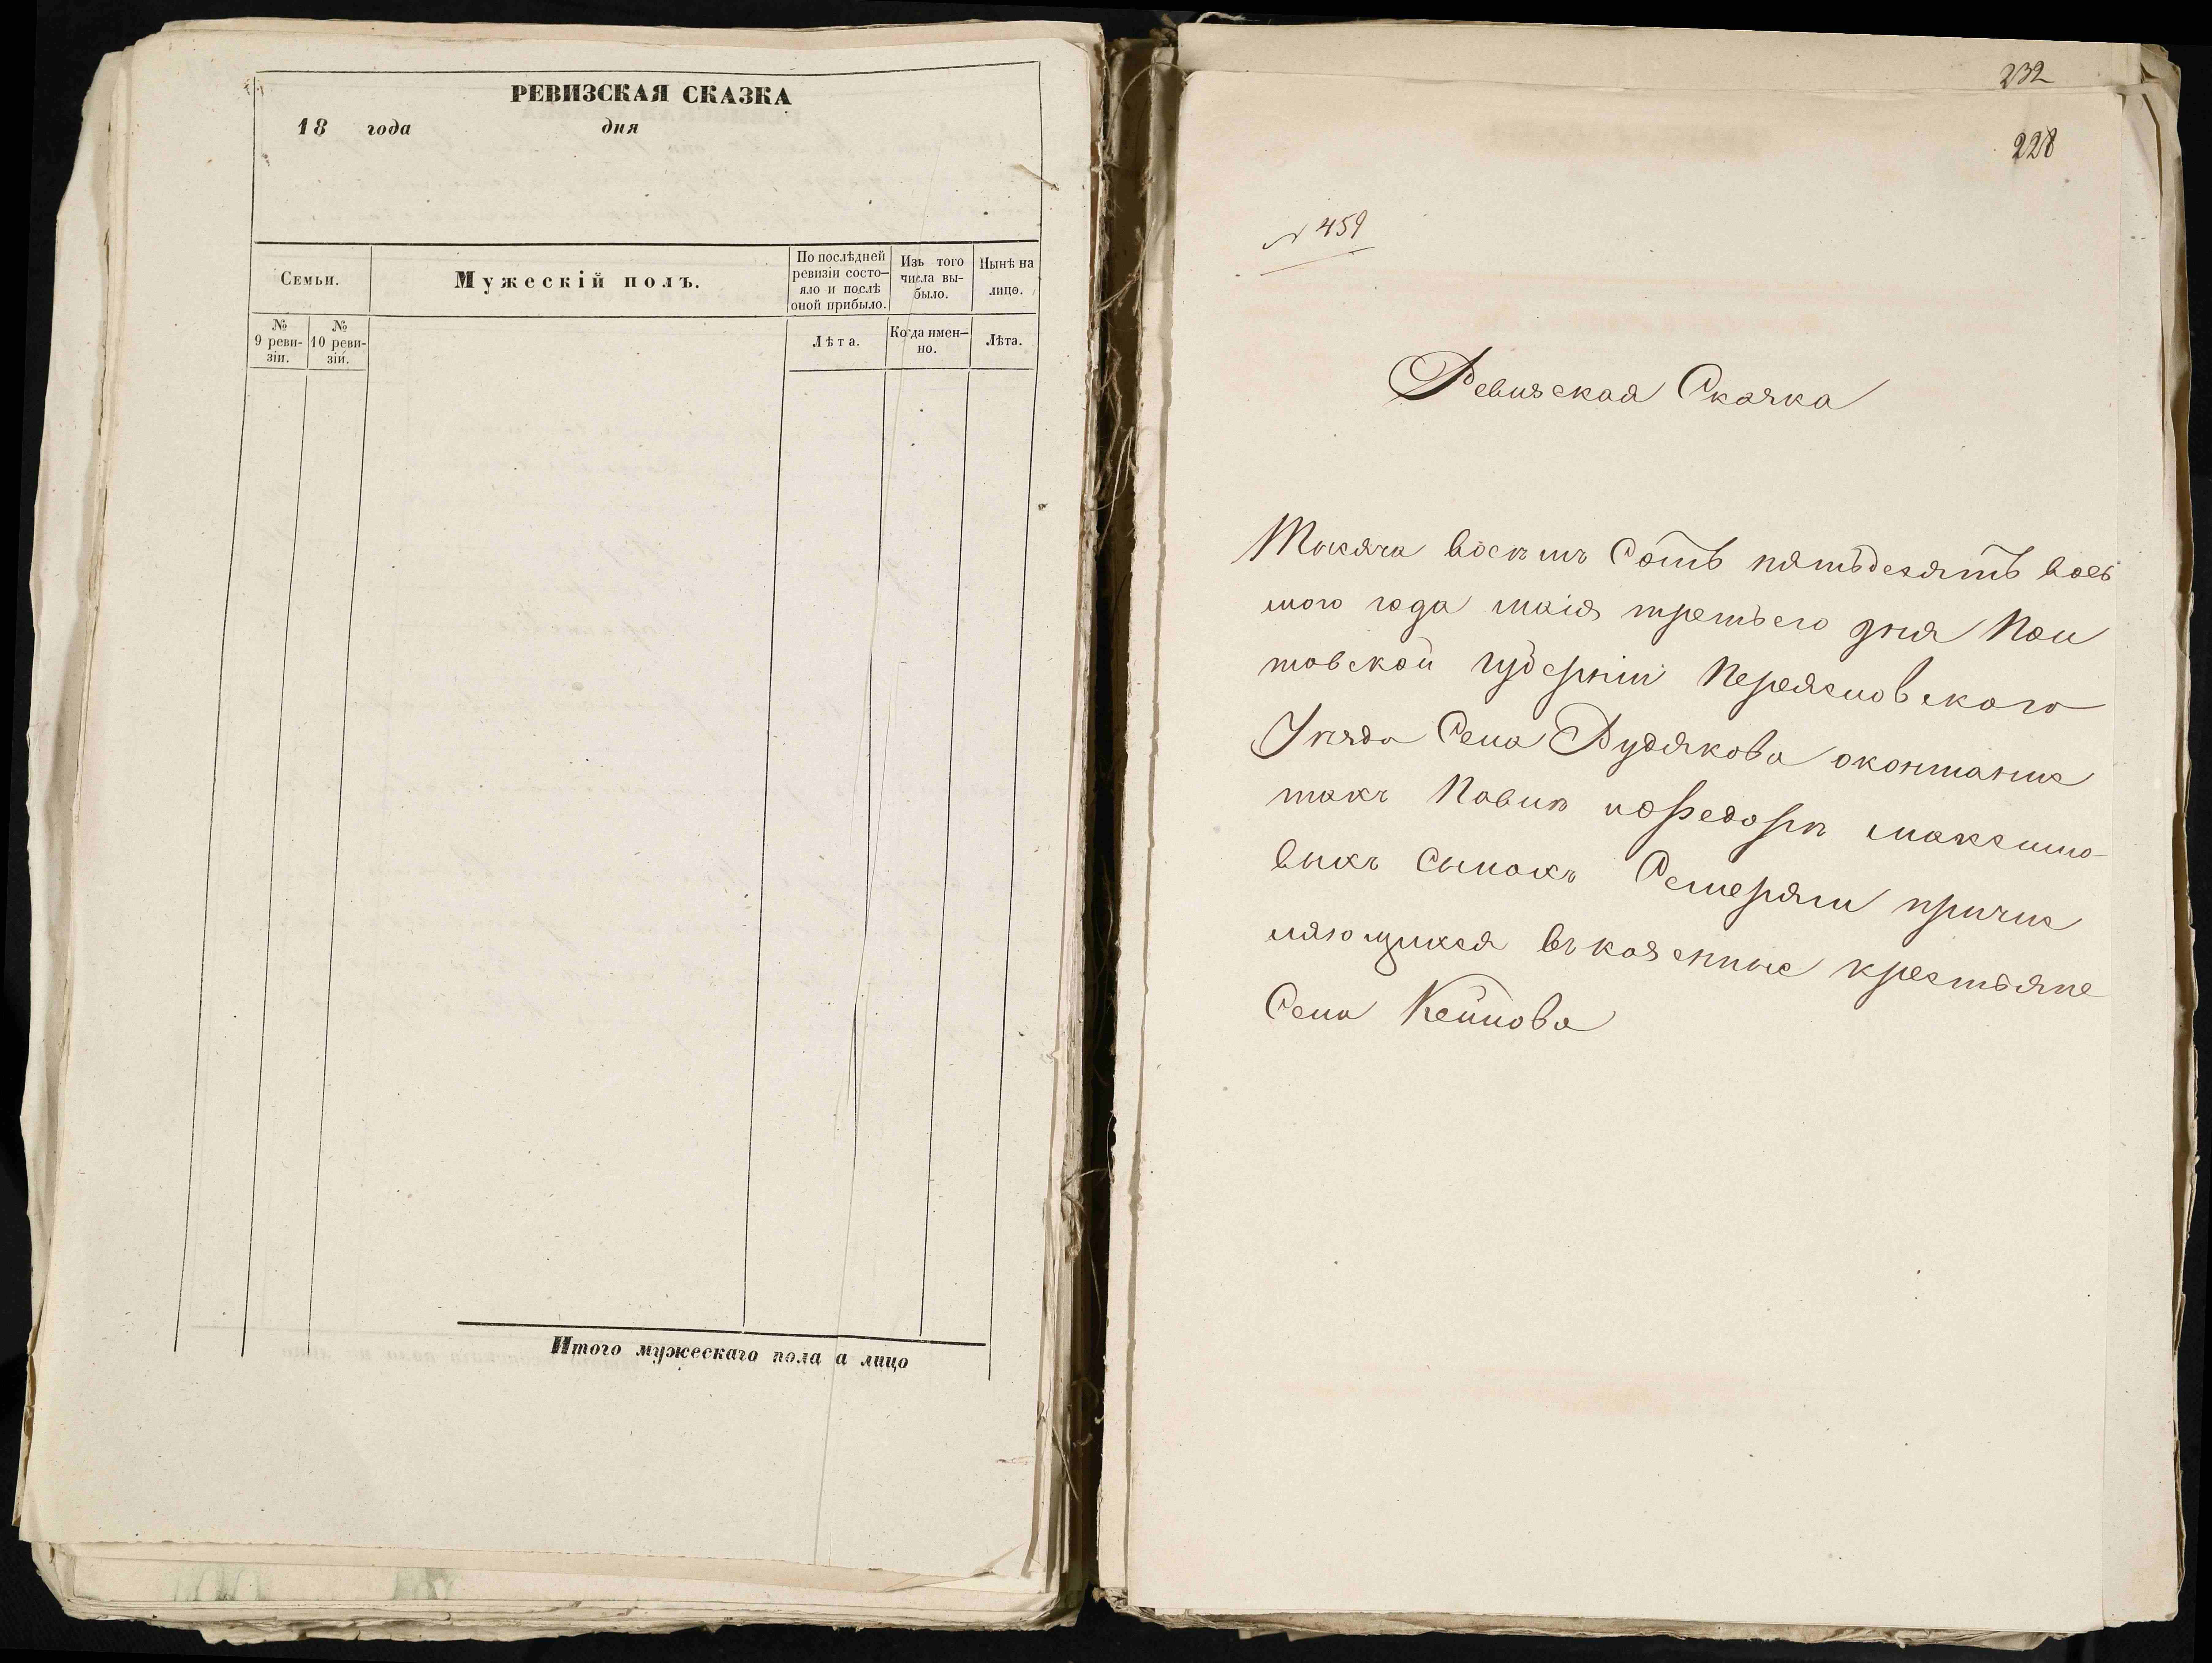 РЕВИЗСКАЯ СКАЗКА
18 года дня
Семьи.
Мужескій полъ.
По послѣдней
ревизіи состо-
яло и послѣ
оной прибыло.
Изъ того
числа вы-
было.
Нынѣ на
лицо.
№
9 реви-
зіи.
№
10 реви-
зіи.
Лѣта.
Когда имен-
но.
Лѣта.
Итого мужескаго пола а лицо
232
228
№ 459
Ревизская Сказка
Тысяча восемъ Сотъ пятьдесятъ вось
мого года маія третьего дня Пол
товской губерніи Переясловского
Уезда Села Рудякова
Павла Федора максимо-
выхъ Сыновъ причис
ляющихся въ козенные крестьяне
Села Кейлова